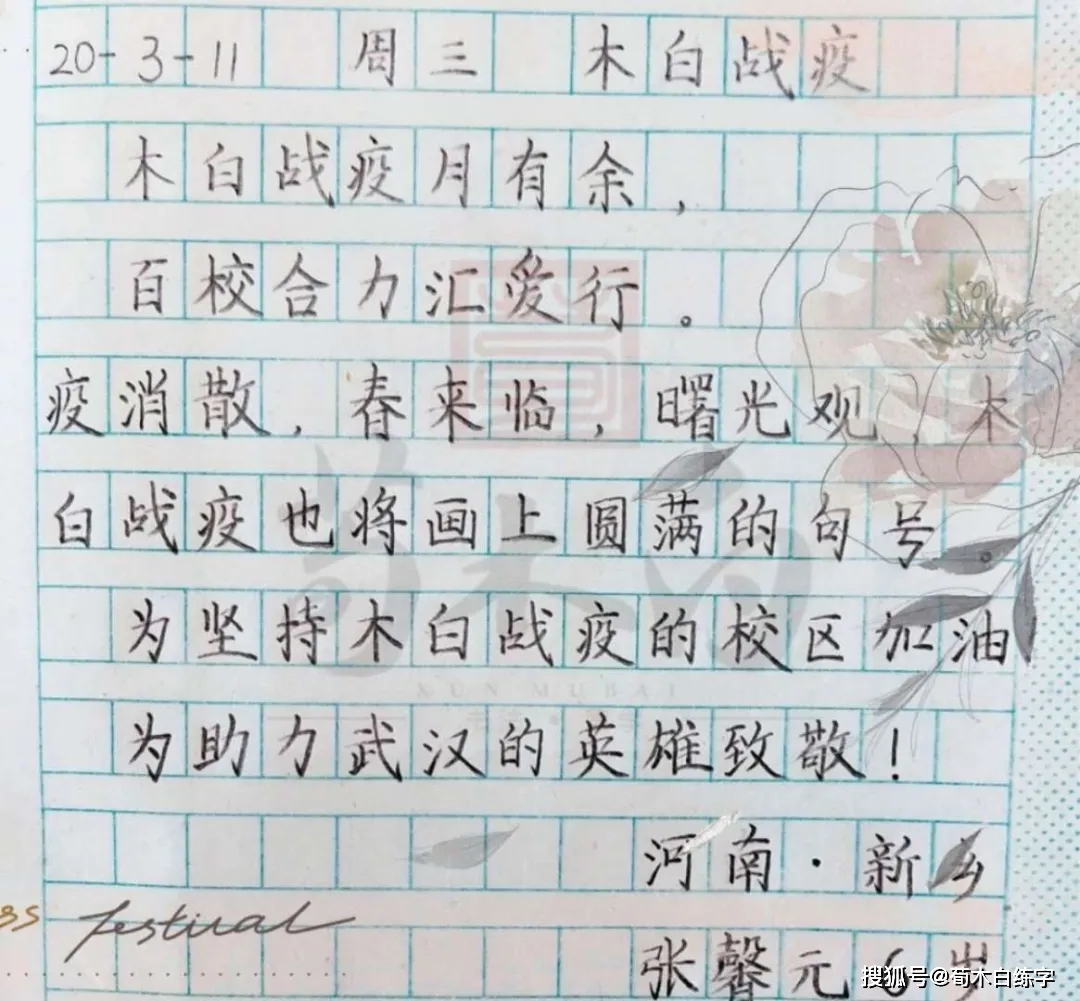 20-3-11 周三 木白战疫
木白战疫月有余，
百校合力汇爱行。
疫消散，春来临，曙光观，木
白战疫也将画上圆满的句号。
为坚持木白战疫的校区加油
为助力武汉的英雄致敬！
河南·新乡
festival
张馨元6岁
荀木白
XUN MUBAI
搜狐号@荀木白练字